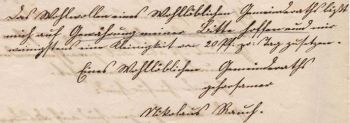 Das Wohlwollen eines Wohllöblichen Gemeinderaths läßt
mich auf Gewährung meiner Bitte hoffen und mir
wenigstens eine Kleinigkeit von 20 Pf. pr. Tag zusetzen.
Eines Wohllöblichen Gemeinderaths
gehorsamer
Nikolaus Rauch.